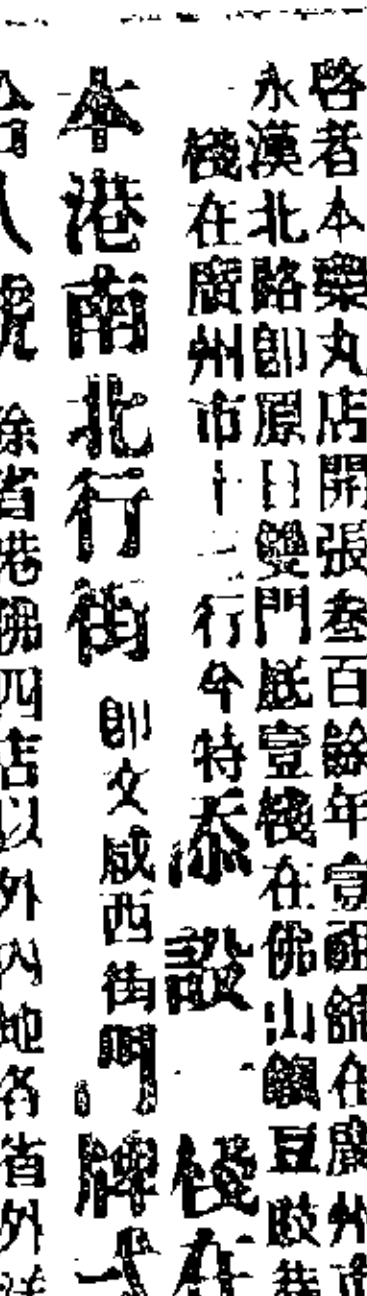 啓者本藥丸店開張叁百餘年壹間舖在廣州市
永漢北路卽原日雙門底壹棧在佛山鎭豆豉巷
棧在廣州市十三行今特添設一棧在
本港南北行街卽文咸西街門牌
八號除省港佛四店以外內地各省外洋